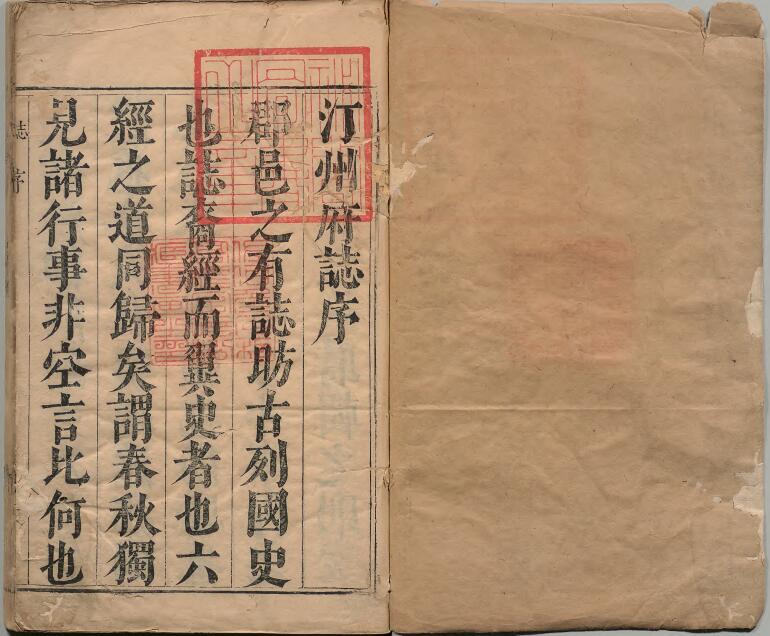 汀州府誌序
郡邑之有誌昉古列國史
也誌裔經而翼史者也六
經之道同歸矣謂春秋獨
見諸行事非空言比何也
誌序